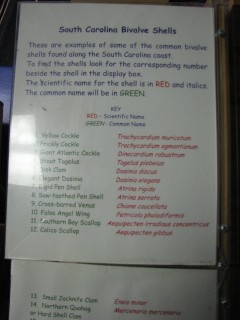 South Carolina Bivalve Shells
These are examples of some of the common bivalve
shells found along the South Carolina coast.
To find the shells look for the corresponding number
beside the shell in the display box.
The Scientific name for the shell is in RED and italics.
The common name will be in GREEN.
KEY
RED - Scientific Name
GREEN - Common Name
Yellow Cockle Trachycardium muricatum
Prickly Cockle Trachycardium egmontianum
Giant Atlantic Cockle Dinocardium robustum
Stout Tagelus Tagelus plebeius
Disk Clam Dosinia discus
6. Elegant Dosinia Dosinia elegans
7. Rigid Pen Shell Atrina rigida
8. Saw-toothed Pen Shell Atrina serrata
9. Cross-barred Venus Chione cancellata
10. False Angel Wing Petricola pholadiformis
11. Southern Bay Scallop Aequipecten irradians concentricus
12. Calico Scallop Aequipecten gibbus
13. Small Jacknife Clam Ensis minor
14. Northern Quahog Mercenaria mercenaria
or Hard Shell Clam